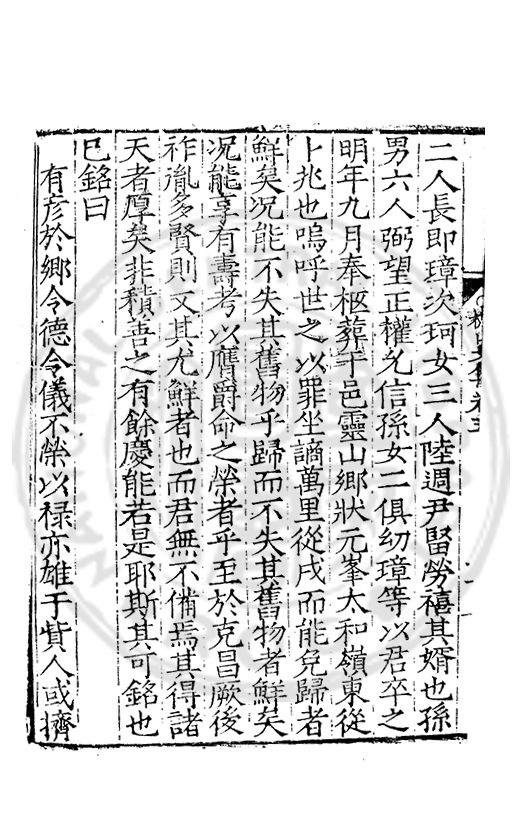 二人長即璋次珂女三人陸週尹㽞勞禧其婿也孫
男六人弼望正權允信孫女二俱幼璋等以君卒之
明年九月奉柩葬于邑靈山鄉狀元峯太和嶺東從
卜兆也嗚呼世之以罪坐謫萬里從戍而能免歸者
鮮矣况能不失其舊物乎歸而不失其舊物者鮮矣
况能享有壽考以膺爵命之榮者乎至於克昌厥後
祚胤多賢則又其尤鮮者也而君無不備焉其得諸
天者厚矣非積善之有餘慶能若是耶斯其可銘也
已銘曰
有彥於鄉令德令儀不榮以祿亦雄于貲人或擠